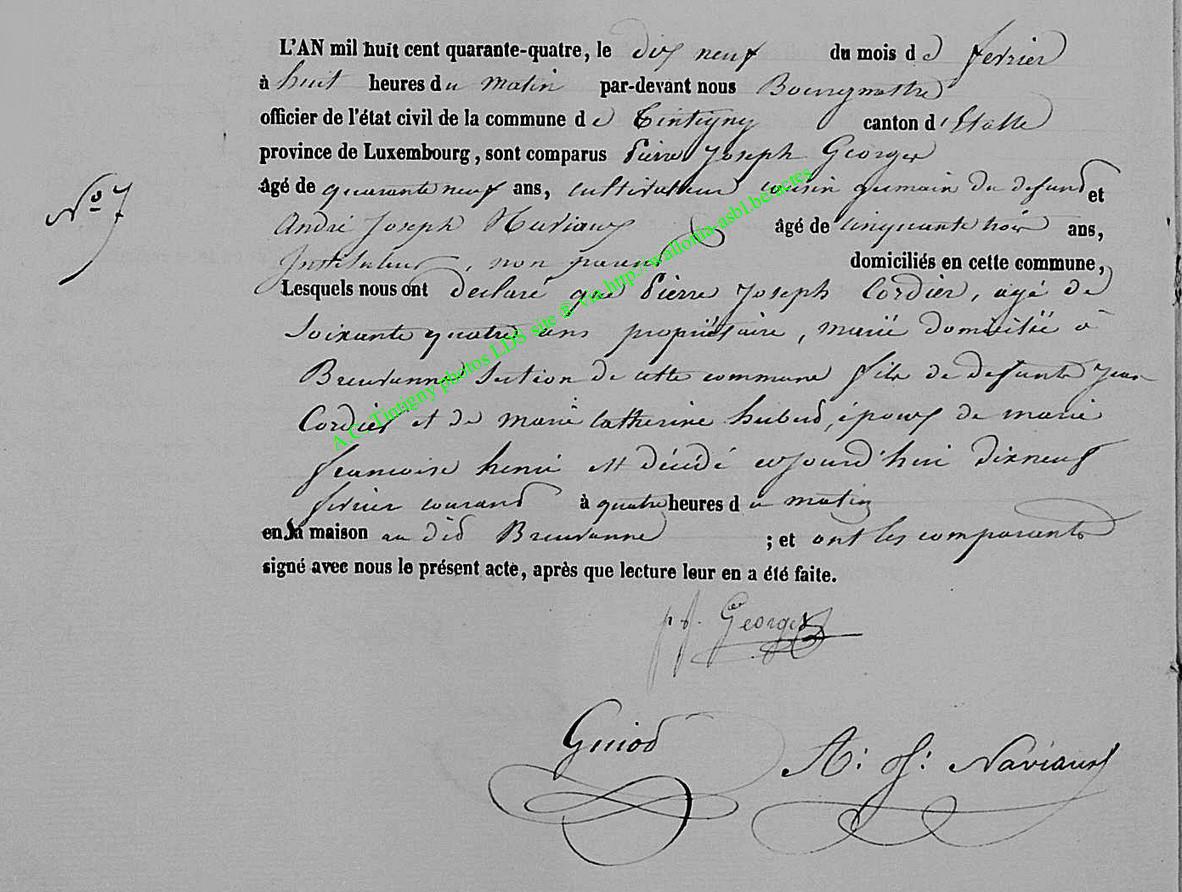 L'AN mil huit cent quarante-quatre, le dix neuf du mois de fevrier
à huit heures du matin par-devant nous Bourgmestre
officier de l'état civil de la commune de Tintigny canton d'Etalle
province de Luxembourg, sont comparus Pierre Joseph Georges
âgé de quarante neuf ans, cultivateur cousin germain du defunt et
André Joseph Naviaux âgé de cinquante trois ans,
Instituteur, non parent domiciliés en cette commune,
Lesquels nous ont declaré que Pierre Joseph Cordier, agé de
Soixante quatre ans propriétaire, marié domicilié à
Breuvanne Section de cette commune fils de defunts Jean
Cordier et de marie Catherine, epoux de marie
francoise henri est décédé aujourd'hui dixneuf
fevrier courant à quatre heures du matin
en sa maison au dit Breuvanne ; et ont les comparants
signé avec nous le présent acte, après que lecture leur en a été faite.
N° 7
A.C. Tintigny photos LDS site © via http://wallonia-asbl.be/actes
Georges
Guiot
A: J: Naviaux